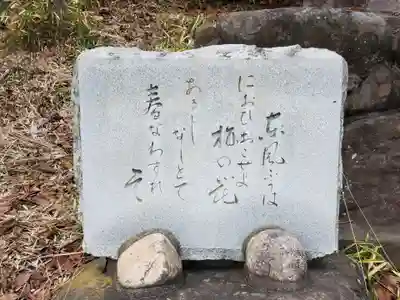 東風ふかば
におひおこせよ
梅の花
あるじ
なしとて
春なわすれ
そ